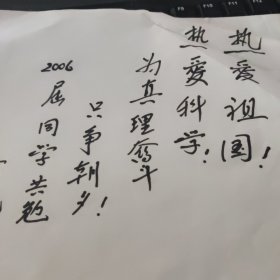 热爱祖国!
热爱科学!
为真理奋斗
只争朝夕!
2006
届同学共勉